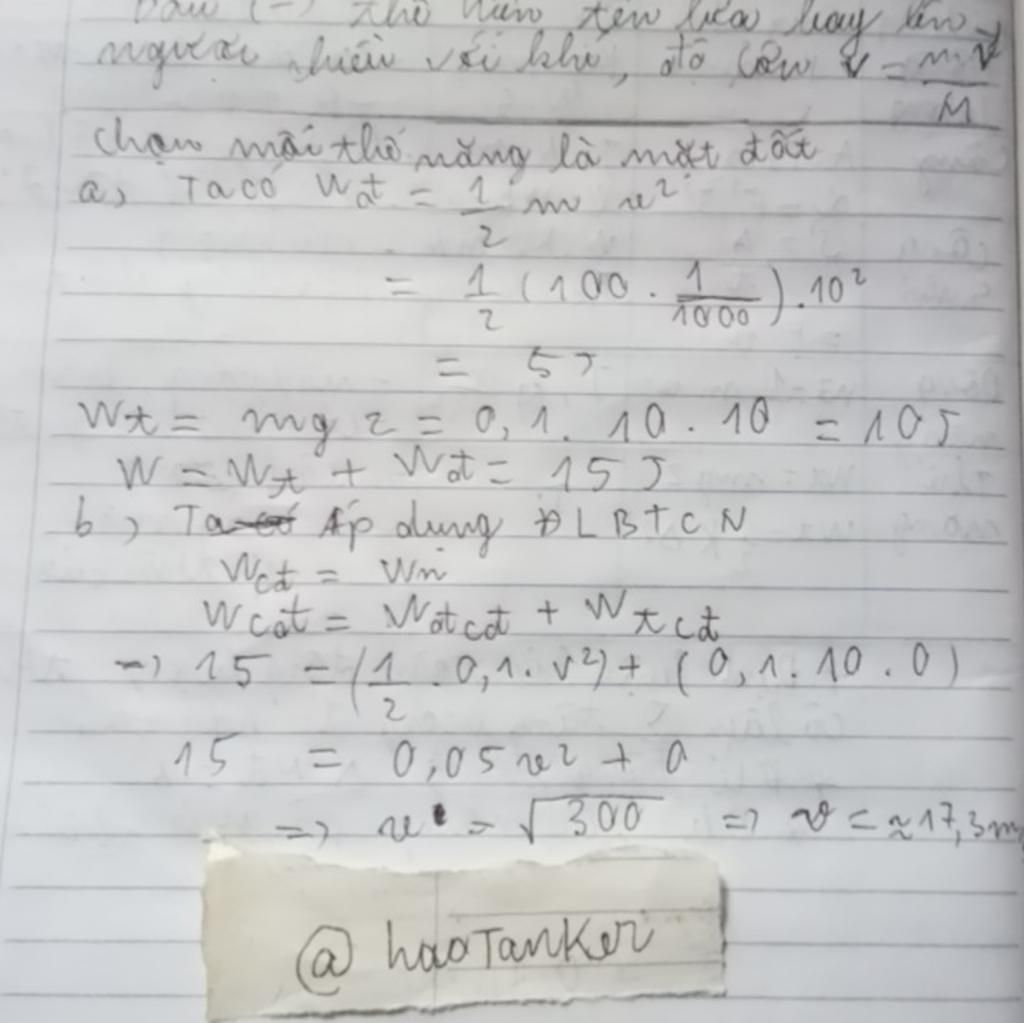 Dấu (-) thể hiện tên lửa bay lên
ngược chiều với khí, độ lớn V = mv/M
Chọn mốc thế năng là mặt đất
a, Ta có Wđ = 1/2 m v²
= 1/2 (100 . 1/1000) . 10²
= 5J
Wt = mg z = 0,1 . 10 . 10 = 10J
W = Wt + Wđ = 15J
b) Ta có Áp dụng ĐLBTCN
Wcđ =
Wcđ = Wđcđ + Wtcđ
=> 15 = (1/2 . 0,1 . v²) + (0,1 . 10 . 0)
15 = 0,05 v² + 0
=> v = √300 => v = ≈ 17,3 m
@haoTanKer